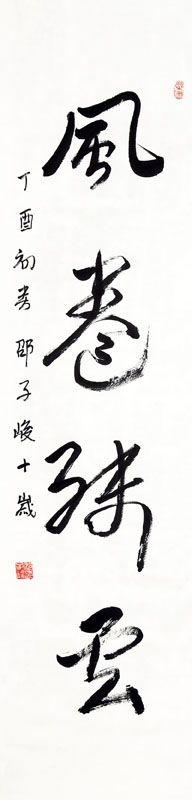 風卷残云
丁酉初春邵子峻十歲